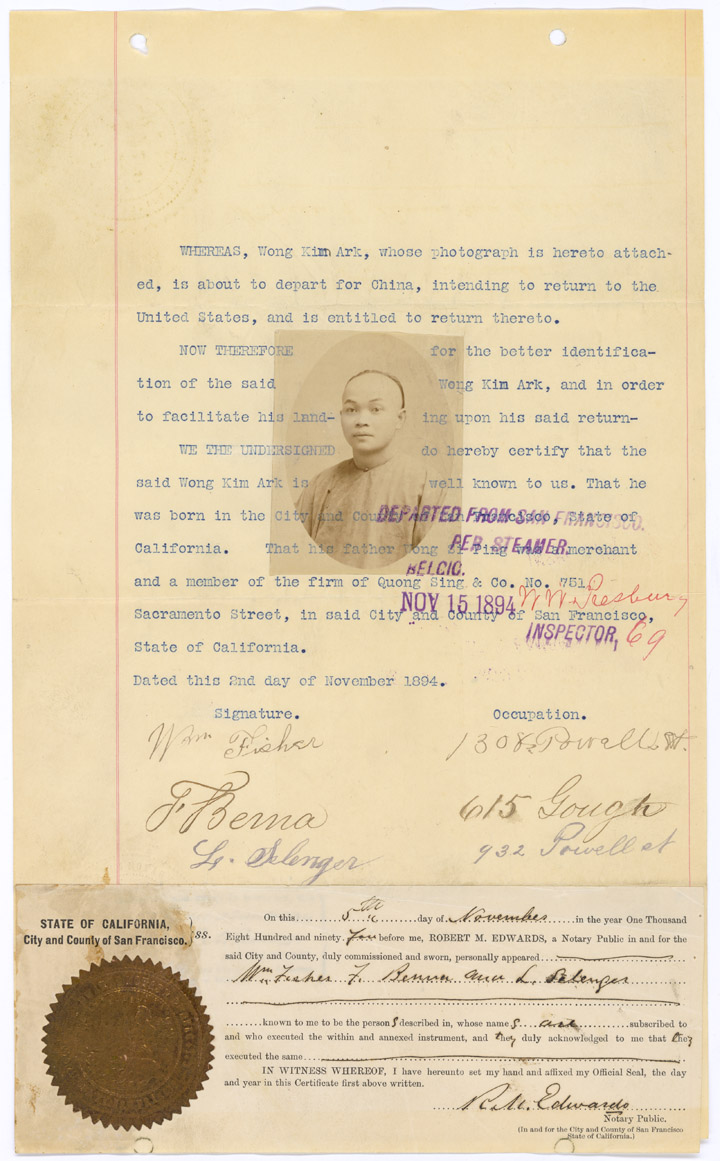 WHEREAS, Wong Kim Ark, whose photograph is hereto attach-
ed, is about to depart for China, intending to return to the
United States, and is entitled to return thereto.
NOW THEREFORE for the better identifica-
tion of the said Wong Kim Ark, and in order
to facilitate his land- ing upon his said return-
WE THE UNDERSIGNED do hereby certify that the
said Wong Kim Ark is well known to us. That he
was born in the City and County of San Francisco, State of
DEPARTED FROM SAN FRANCISCO.
PER STEAMER.
California. That his father Wong Si Ping was a merchant
BELGIC.
and a member of the firm of Quong Sing & Co. No. 751
NOV 15 1894
Sacramento Street, in said City and County of San Francisco,
INSPECTOR, 69
State of California.
Dated this 2nd day of November 1894.
Signature. Occupation.
Wm Fisher 1308 Powell St.
F Berna 615 Gough
L. Selenger 932 Powell st
STATE OF CALIFORNIA,
City and County of San Francisco. } ss.
On this 5th day of November in the year One Thousand
Eight Hundred and ninety four before me, ROBERT M. EDWARDS, a Notary Public in and for the
said City and County, duly commissioned and sworn, personally appeared
Wm Fisher F. Berna and L. Selenger
known to me to be the persons described in, whose names are subscribed to
and who executed the within and annexed instrument, and they duly acknowledged to me that they
executed the same
IN WITNESS WHEREOF, I have hereunto set my hand and affixed my Official Seal, the day
and year in this Certificate first above written.
R. M. Edwards
Notary Public.
(In and for the City and County of San Francisco
State of California.)